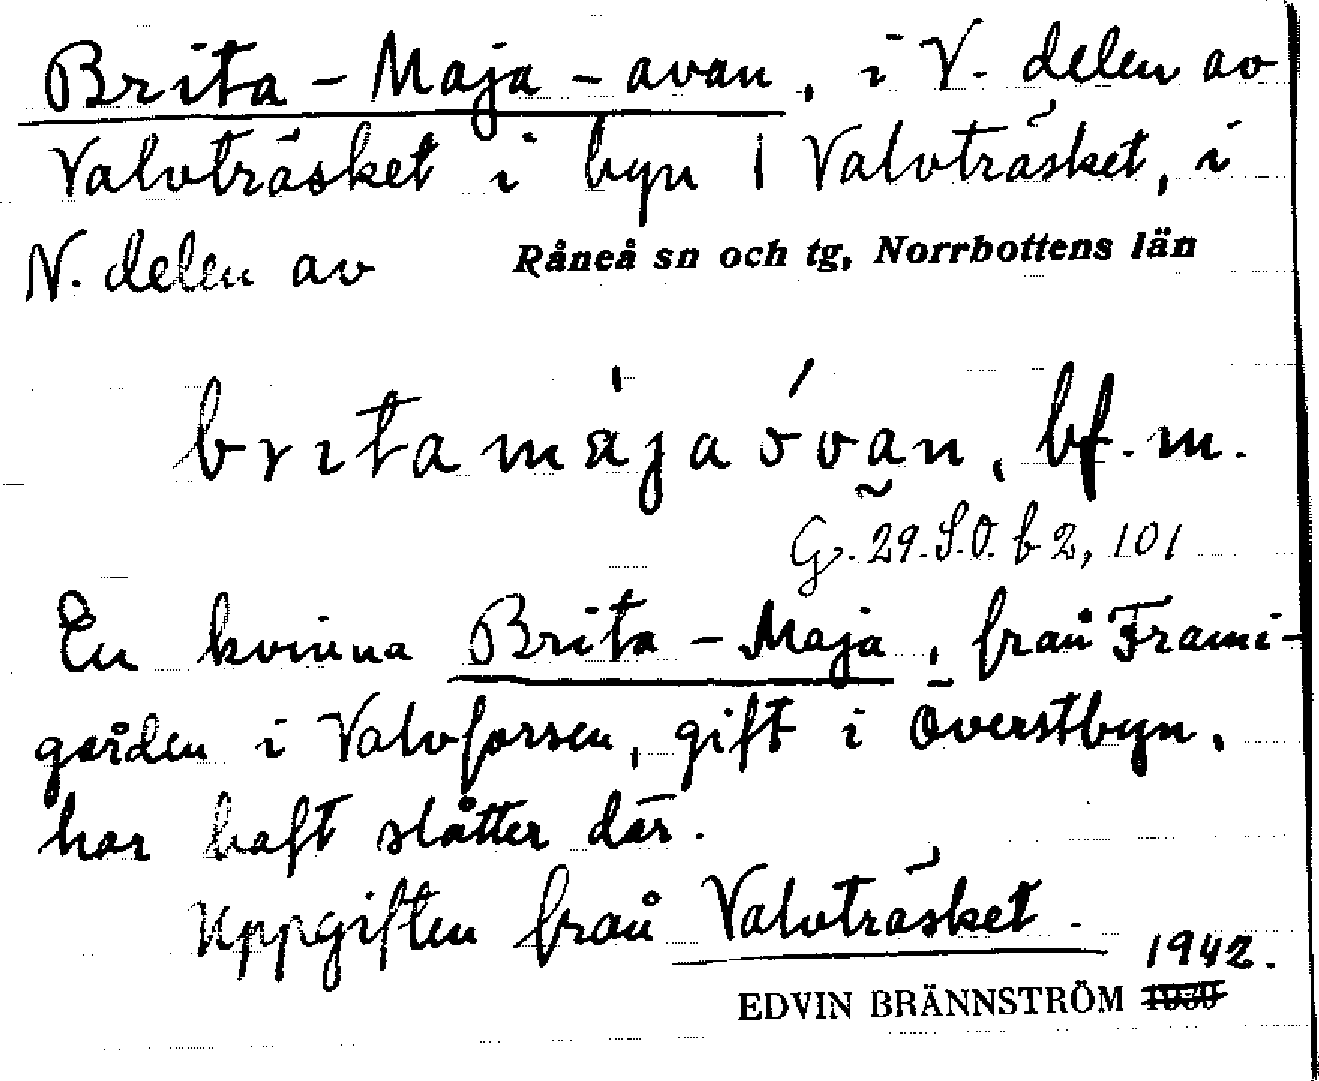 Brita-Maja-avan, i V. delen av
Valvträsket i byn 1 Valvträsket, i
N. delen av Råneå sn och tg, Norrbottens län
britamájaóvan, bf. m.
G. 29. S.O. b 2, 101
En kvinna Brita-Maja, från Frami-
gården i Valvforsen, gift i Överstbyn,
har haft slåtter där.
Uppgiften från Valvträsket.
1942.
EDVIN BRÄNNSTRÖM 1939